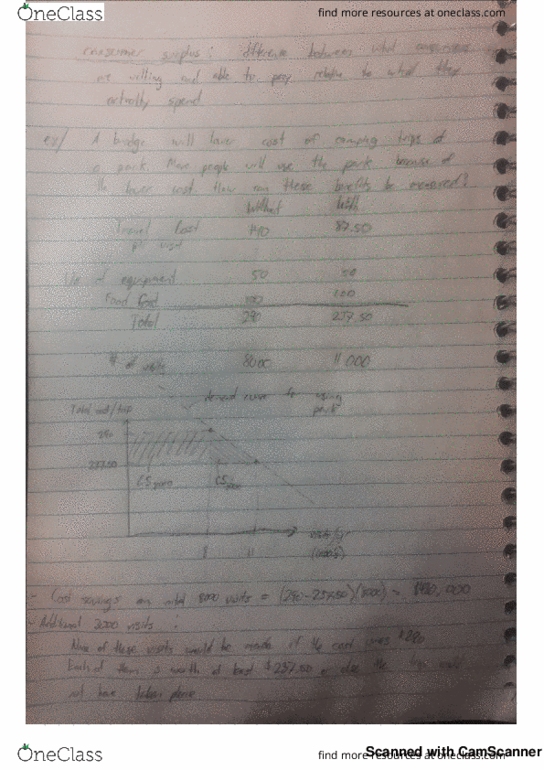 OneClass
find more resources at oneclass.com
consumer surplus : difference between what consumers
are willing and able to pay relative to what they
actually spend
ex/ A bridge will lower cost of camping trips at
a park. More people will use the park because of
the lower cost. How can these benefits be measured?
Without With
Travel Cost 140 87.50
per visit
Use of equipment 50 50
Food 100 100
Total 290 237.50
# of visits 8000 11 000
demand curve for using
park
Total cost/trip
290
237.50
CS 8000 CS 3000
8 11 visits/yr
(000's)
- Cost savings on initial 8000 visits = (290-237.50)(8000) = $420,000
- Additional 3000 visits :
None of these visits would be made if the cost was $290
Each of them is worth at least $237.50 or else the trips would
not have taken place
OneClass
find more resources at oneclass.com
Scanned with CamScanner